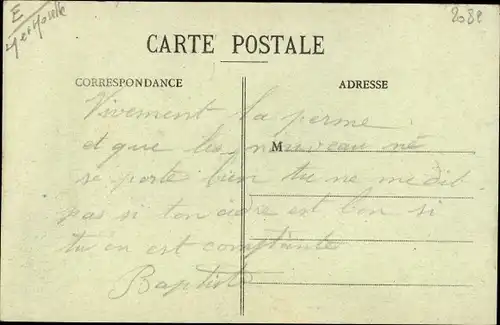 E
2082
CARTE POSTALE
CORRESPONDANCE
ADRESSE
M
Vivement la perme
et que les nouveau né
se porte bien tu ne me dit
pas si ton cidre est bon si
tu en est comptante
Baptiste